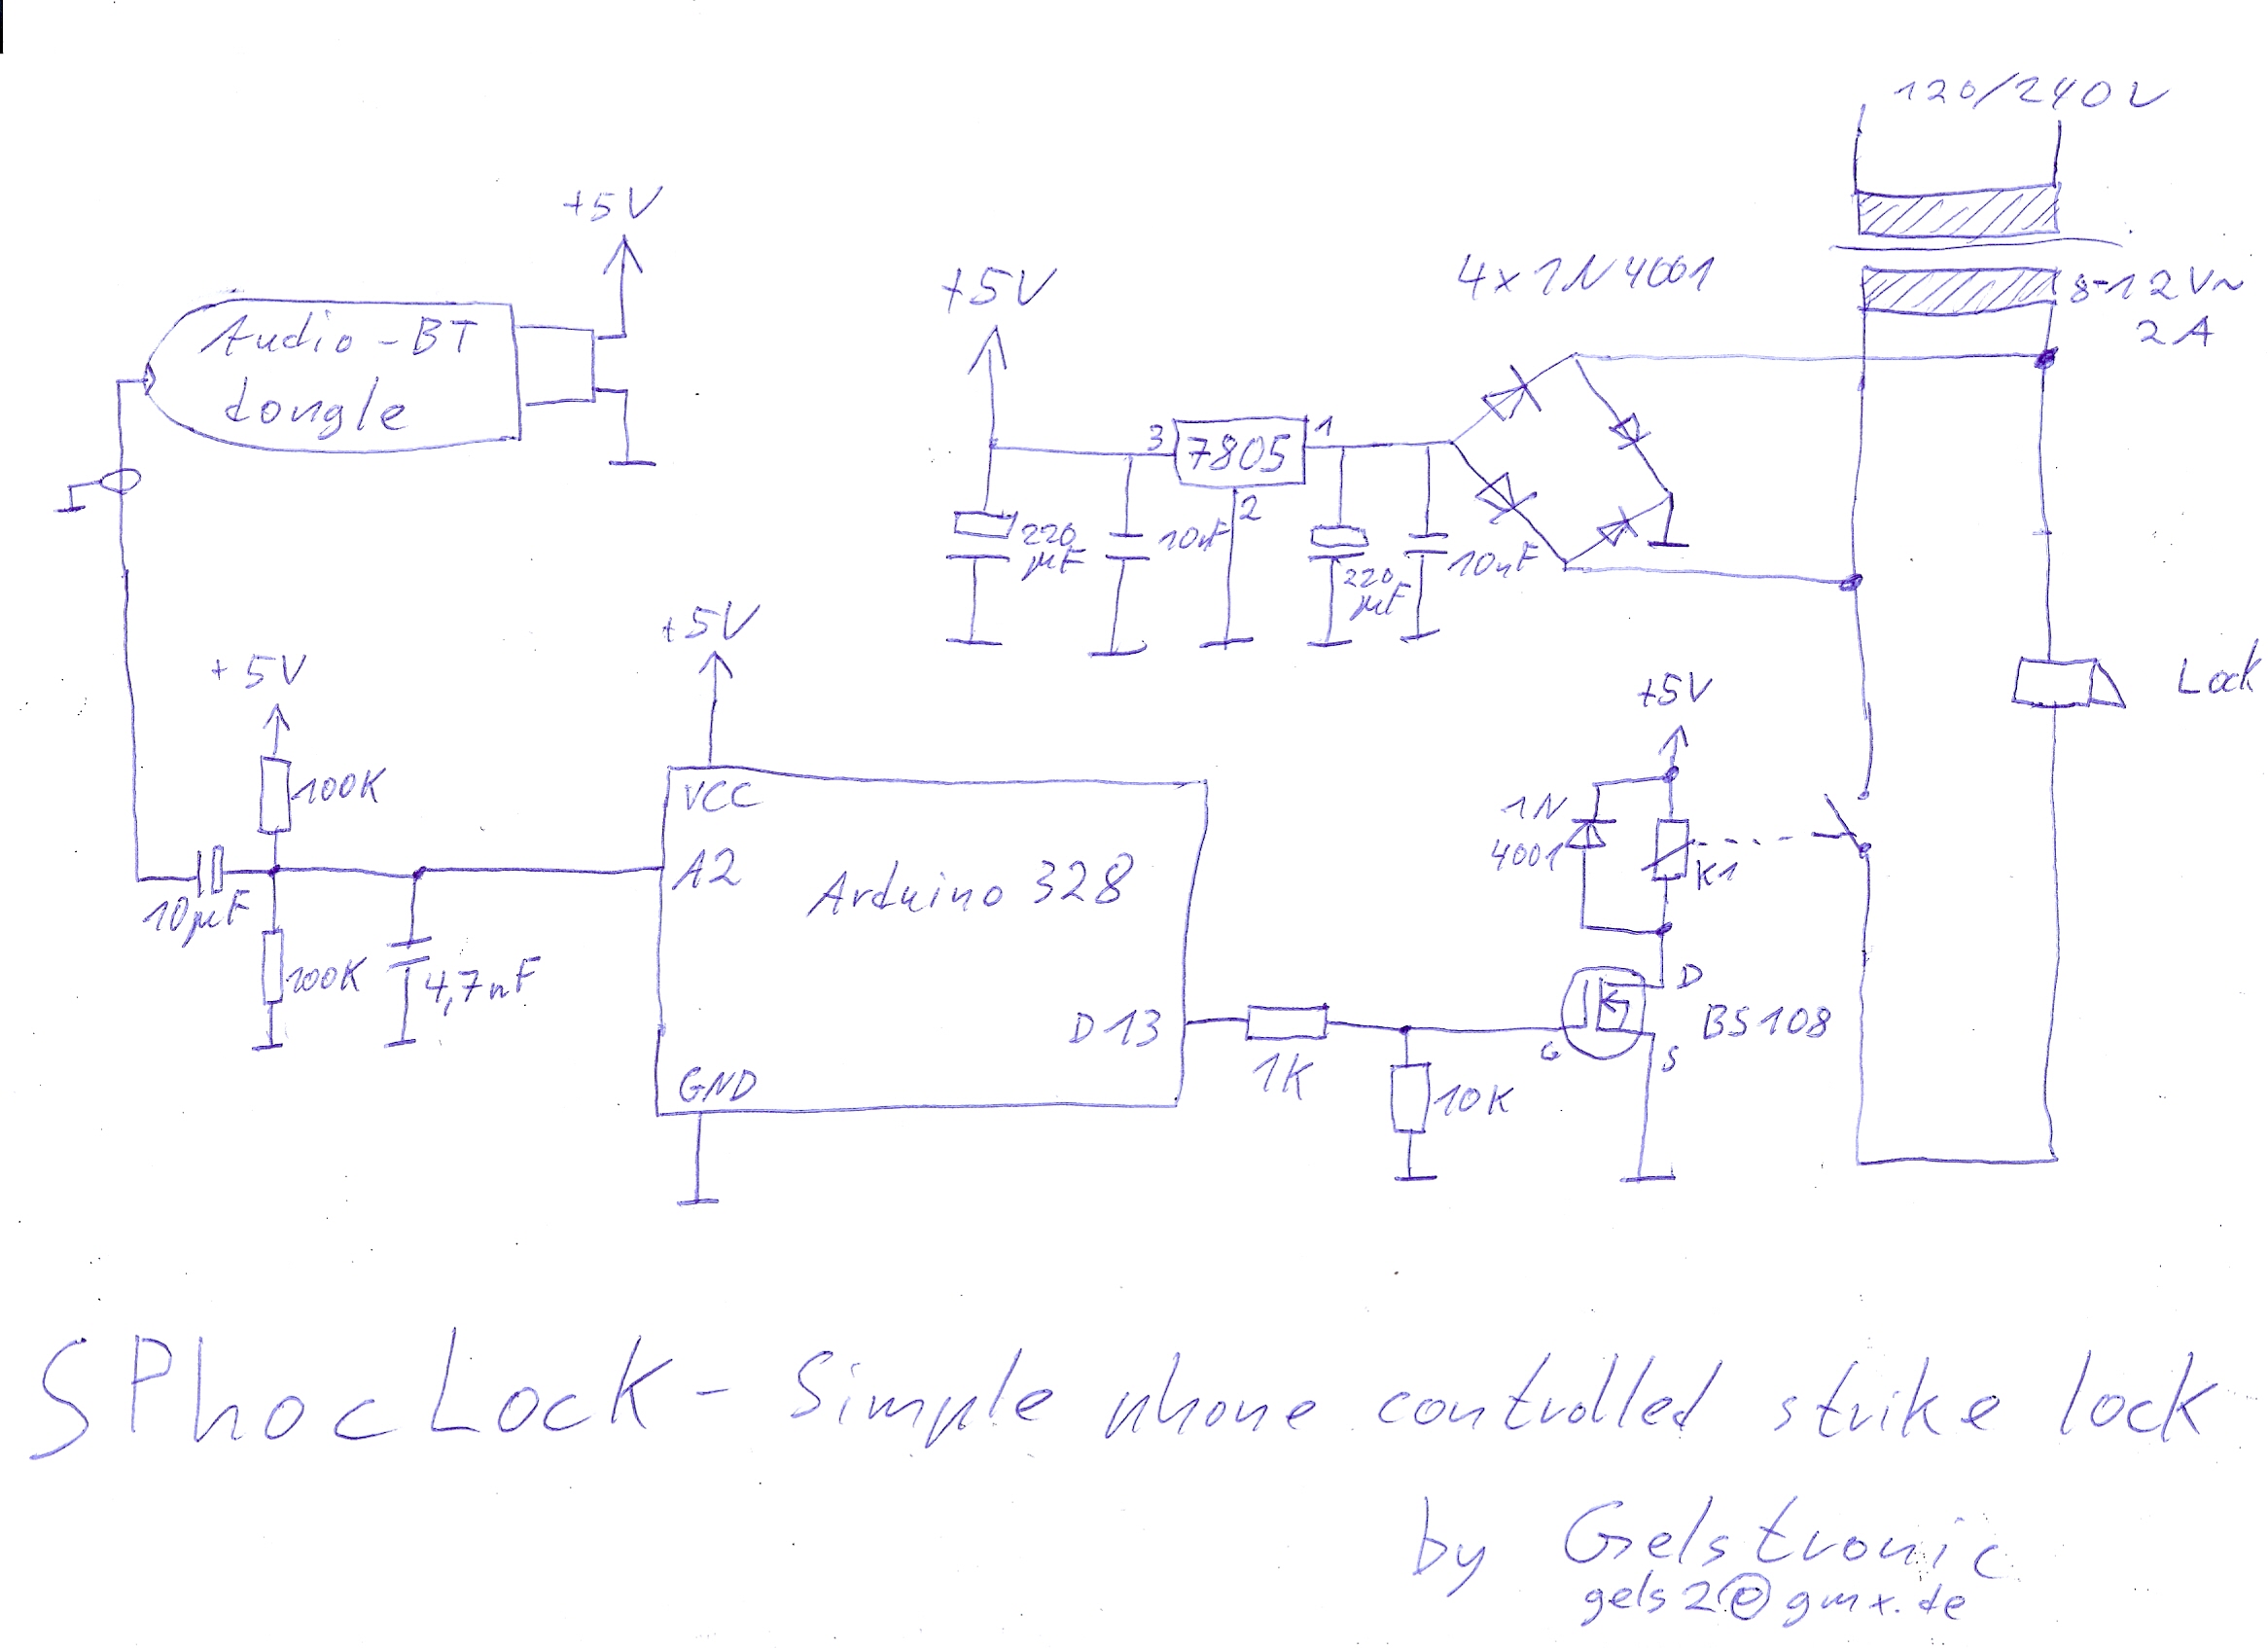 120/240V
+5V
4x1N4001
+5V
8-12V~
2A
Audio-BT
dongle
3
7805
1
2
220
µF
10nF
220
µF
10nF
+5V
+5V
+5V
Lock
100K
VCC
1N
4001
K1
A2
Arduino 328
10µF
100K
4,7nF
D
BS108
D13
G
S
1K
10K
GND
SPhocLock - Simple phone controlled strike lock
by Gelstronic
gels2@gmx.de